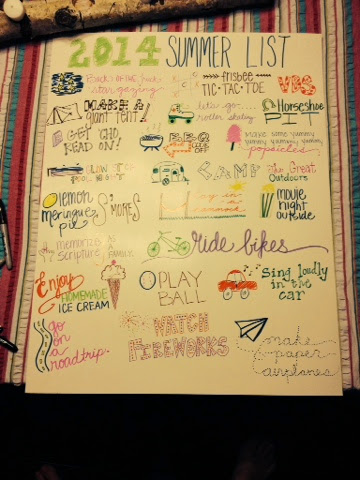 2014 SUMMER LIST
Back of the truck
star gazing
frisbee
TIC-TAC-TOE
VBS
MAKE A
giant tent!
let's go...
roller skating
Horseshoe
PIT
GET THO
READ ON!
BBQ
make some yummy
yummy yummy yummy
popsicles
GLOW STICK
POOL
CAMP in the Great
Outdoors
lemon
meringue
pie
S'MORES
lay in a
hammock
MOVIE
night
outside
memorize
Scripture
as a
FAMILY.
ride bikes
Enjoy
HOMEMADE
ICE CREAM
PLAY
BALL
Sing loudly
in the
car
go
on
a
roadtrip.
WATCH
FIREWORKS
make
paper
airplanes